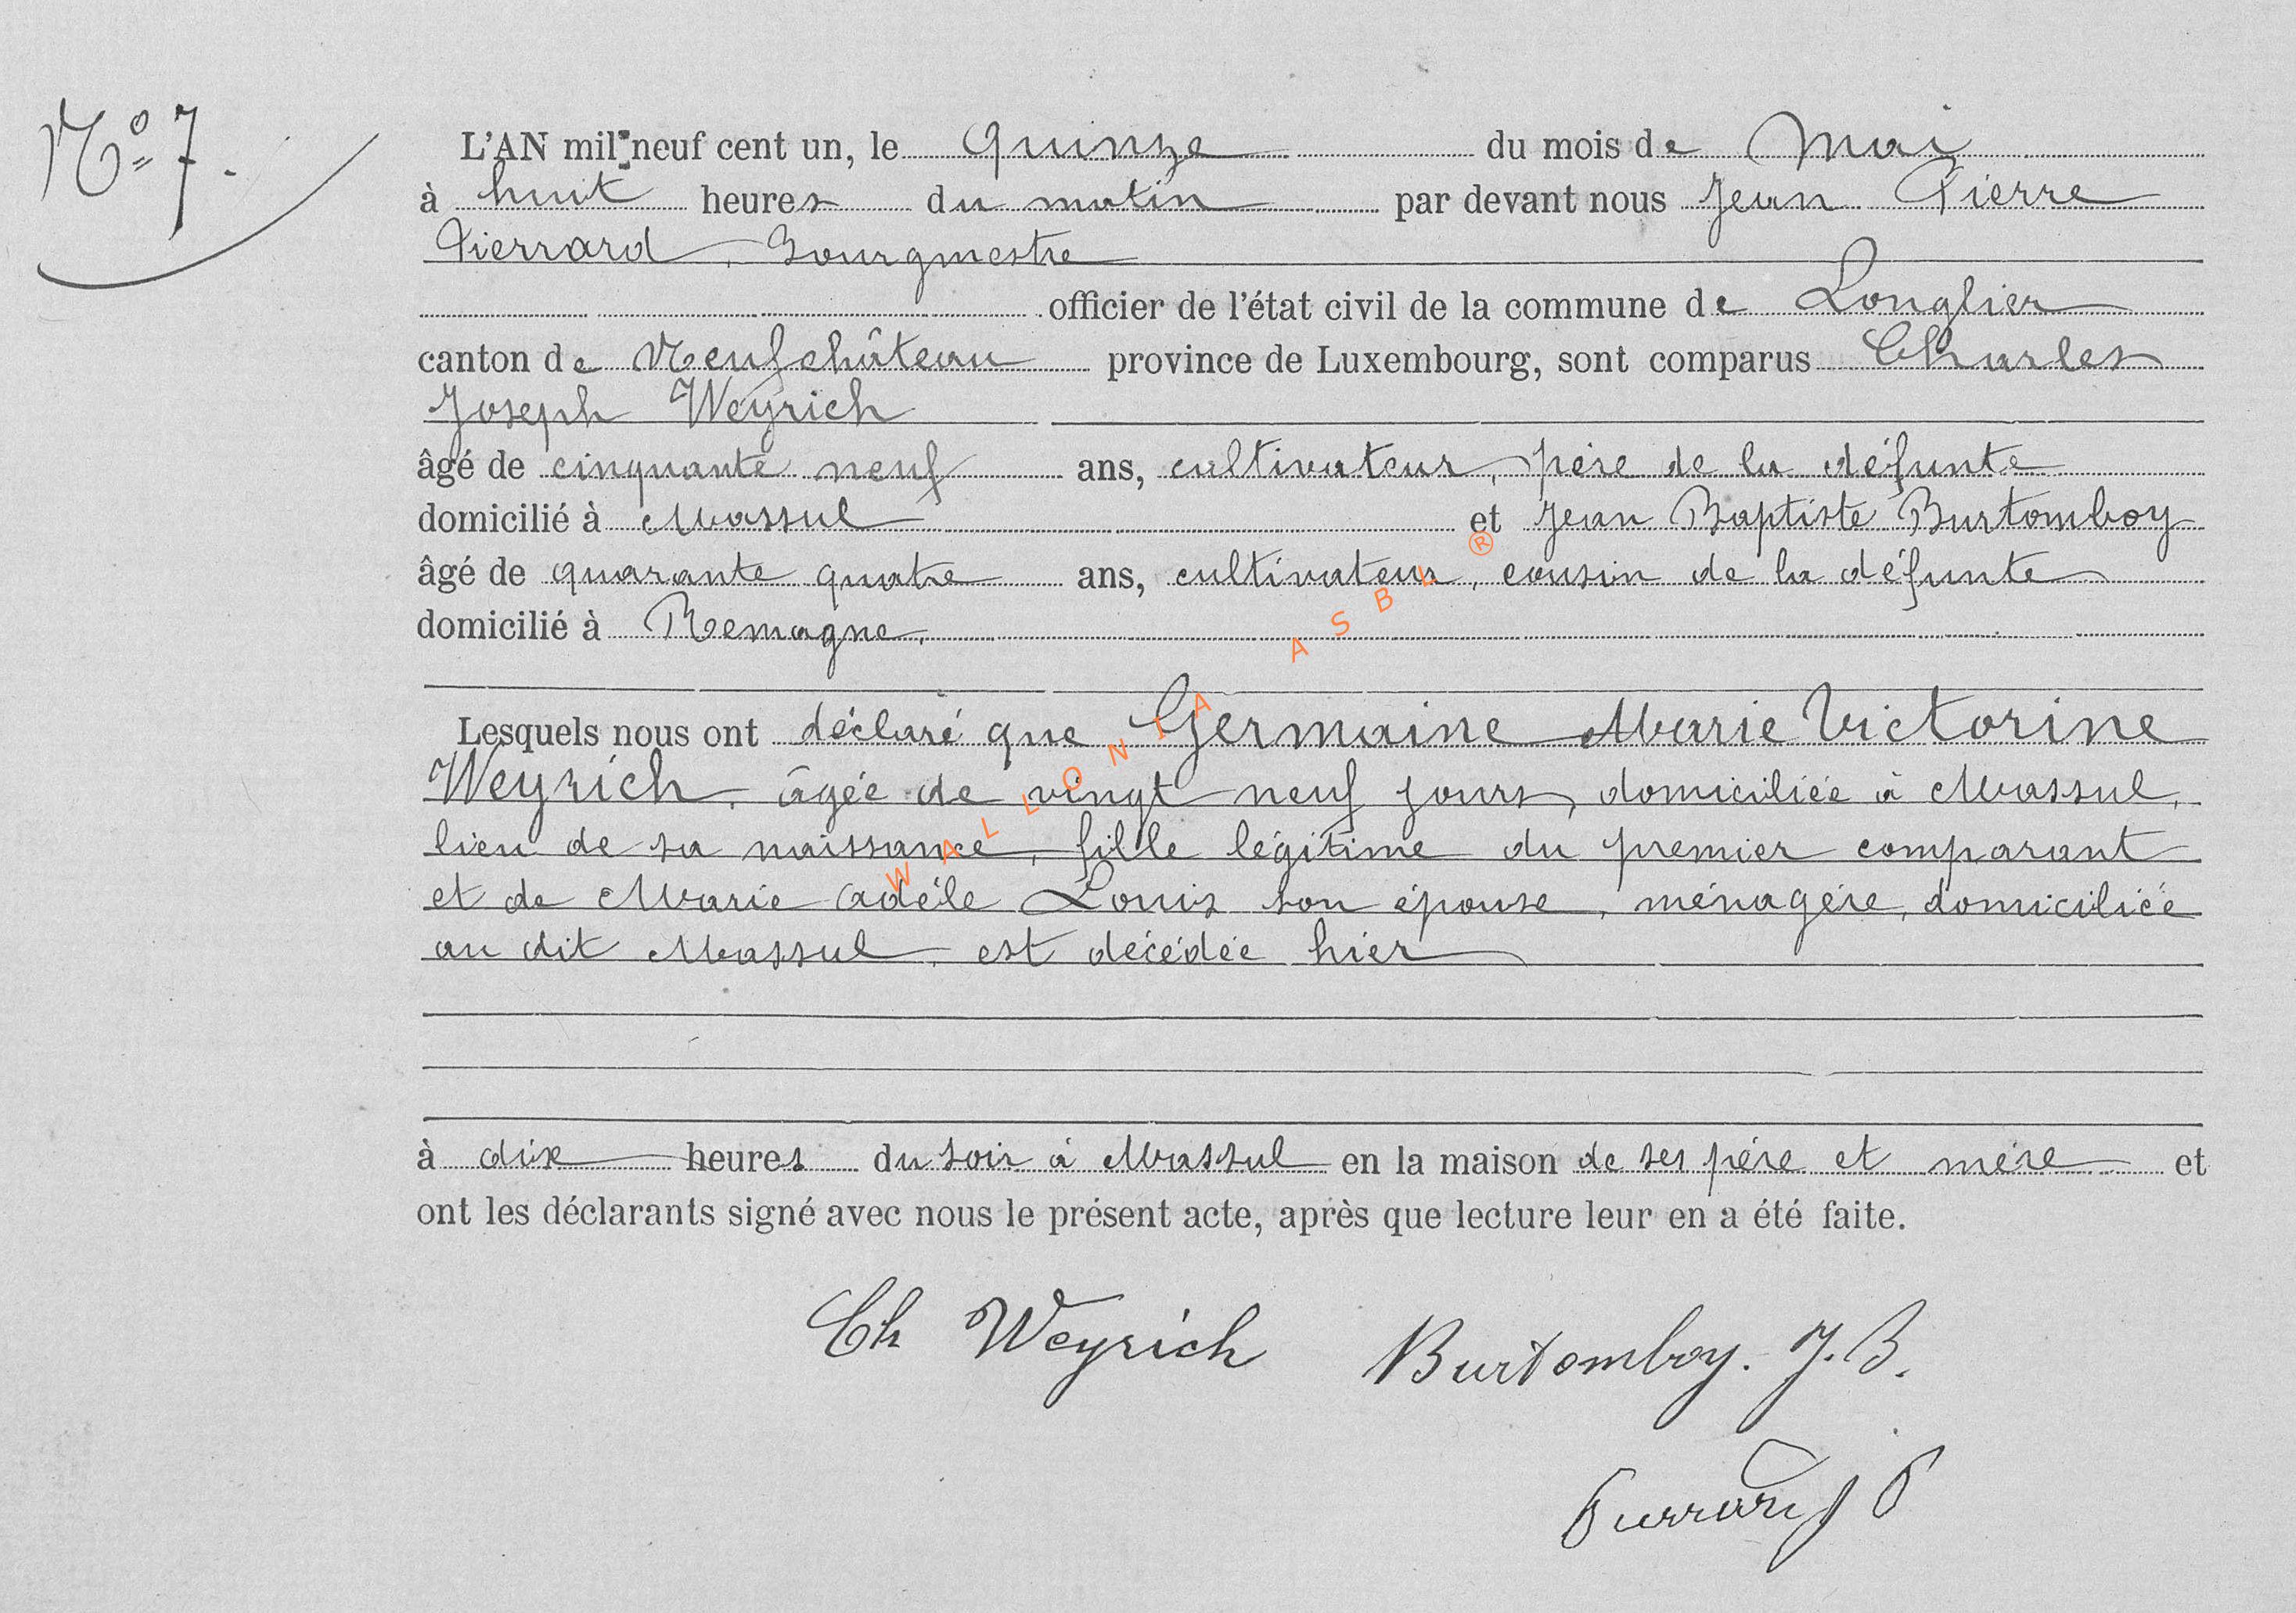 N° 7.
L'AN mil neuf cent un, le quinze du mois de Mai
à huit heures du matin par devant nous Jean Pierre
Pierrard, Bourgmestre
officier de l'état civil de la commune de Longlier
canton de Neufchâteau province de Luxembourg, sont comparus Charles
Joseph Weyrich
âgé de cinquante neuf ans, cultivateur, père de la défunte
domicilié à Massul et Jean Baptiste Burtomboy
âgé de quarante quatre ans, cultivateur, cousin de la défunte
domicilié à Remagne.
Lesquels nous ont déclaré que Germaine Marie Victorine
Weyrich, âgée de vingt neuf jours, domiciliée à Massul,
lieu de sa naissance, fille légitime du premier comparant
et de Marie Adèle Louis son épouse, ménagère, domiciliée
au dit Massul, est décédée hier
à dix heures du soir à Massul en la maison de ses père et mère et
ont les déclarants signé avec nous le présent acte, après que lecture leur en a été faite.
Ch Weyrich Burtomboy. J. B.
Pierrard J P
WALLONIA ASBL ®